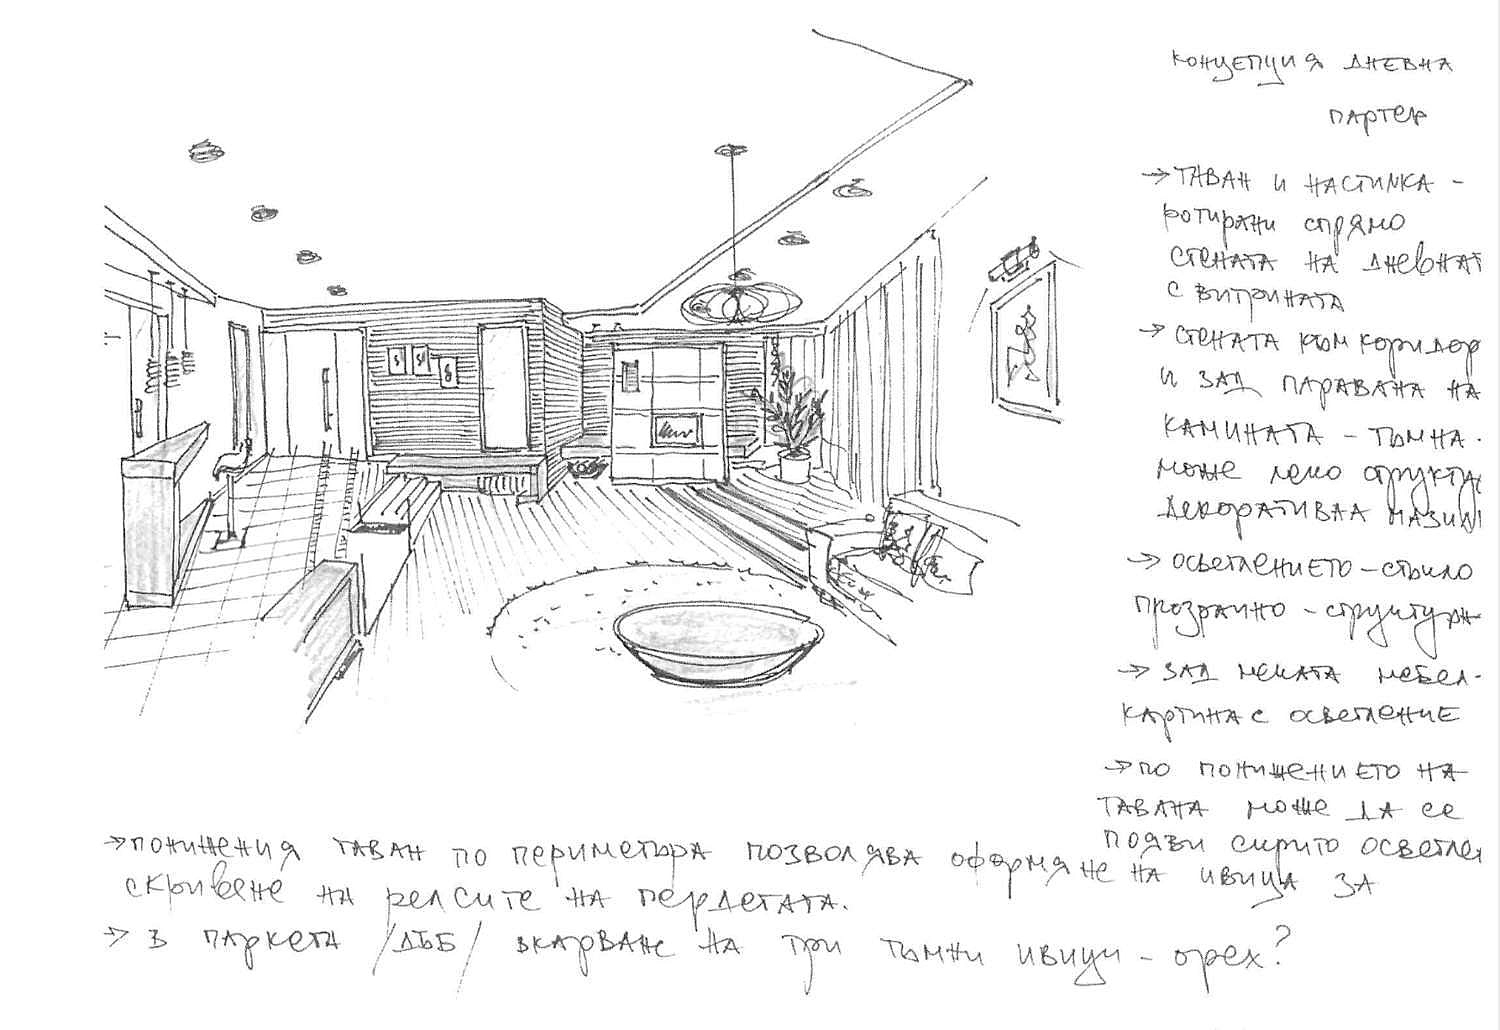 концепция дневна
партер
→ таван и настилка -
ротирани спрямо
стената на дневнат
с витрината
→ стената към коридор
и зад паравана на
камината - тъмна.
може леко структу
декоративаа мазил
→ осветлението - стъкло
прозрачно - структурн
→ зад меката мебел -
картина с осветление
→ по понижението на
тавана може да се
появи скрито осветлен
→ понижения таван по периметъра позволява оформяне на ивица за
скриване на релсите на пердетата.
→ в паркета /дъб/ вкарване на три тъмни ивици - орех?